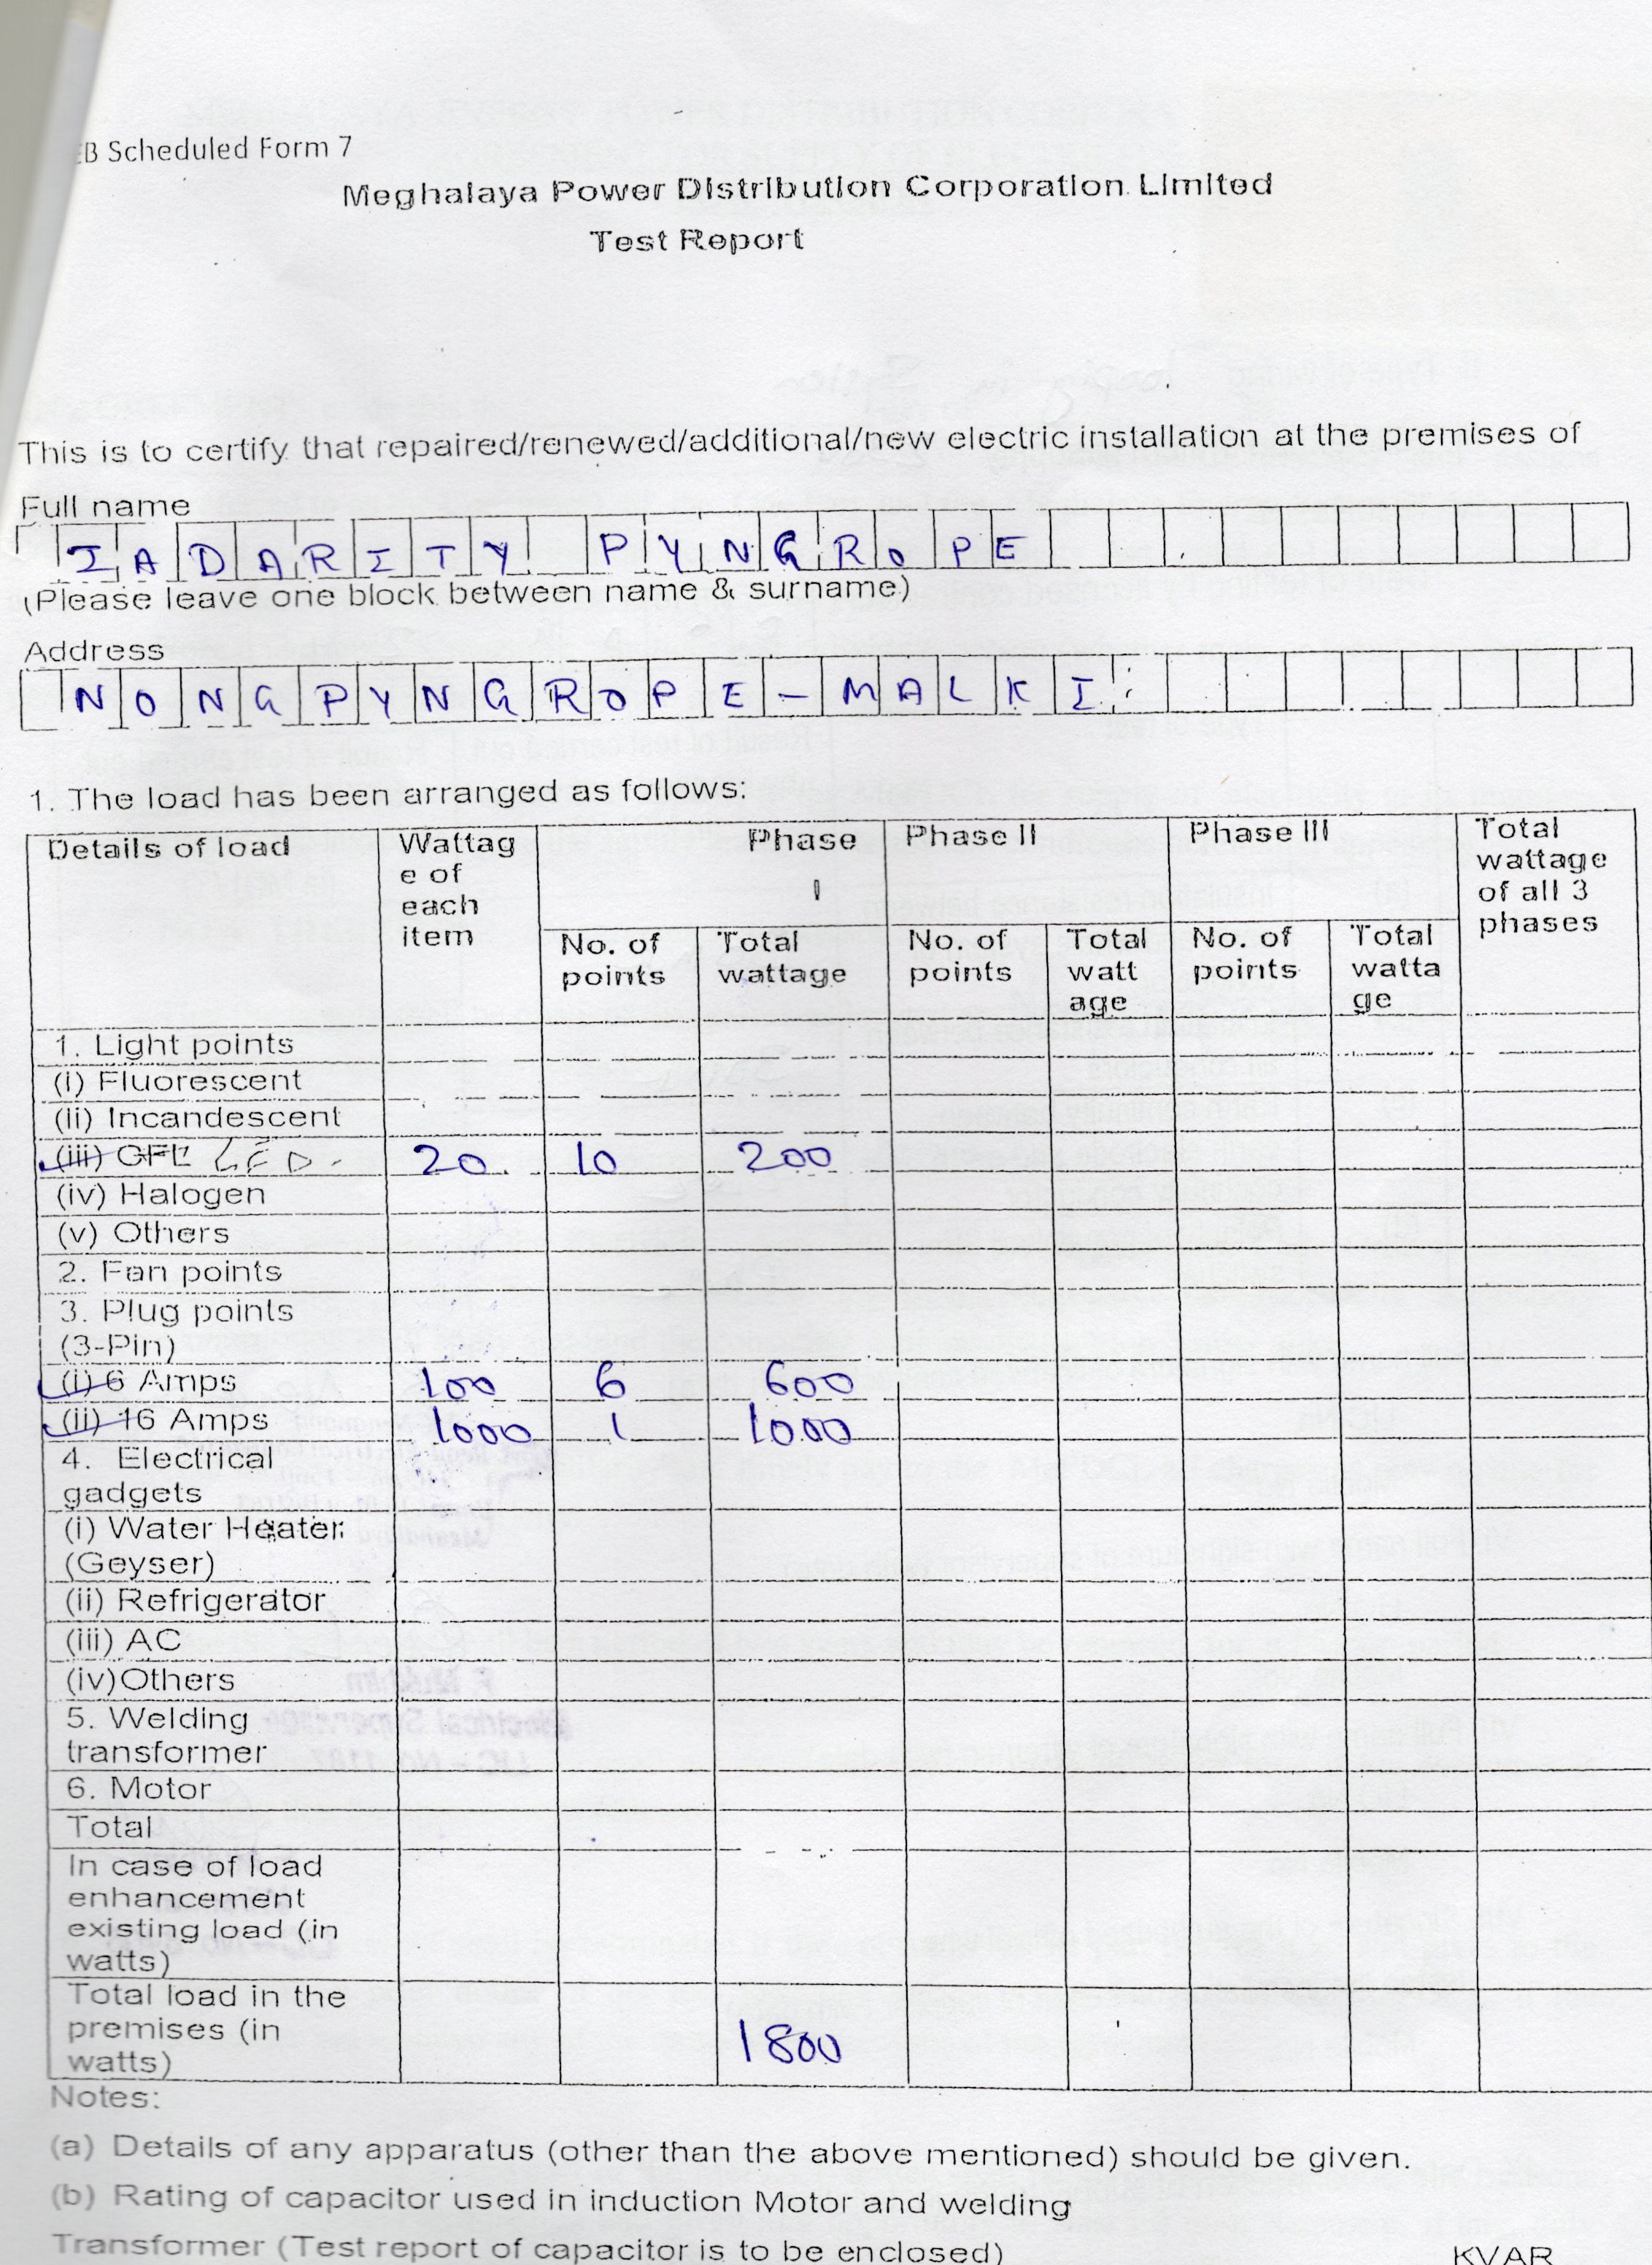 EB Scheduled Form 7
Meghalaya Power Distribution Corporation Limited
Test Report
This is to certify that repaired/renewed/additional/new electric installation at the premises of
Full name
IADARITY PYNGROPE
(Please leave one block between name & surname)
Address
NONGPYNGROPE-MALKI
1. The load has been arranged as follows:
Details of load Wattag e of each item Phase I Phase II Phase III Total wattage of all 3 phases
No. of points Total wattage No. of points Total watt age No. of points Total watta ge
1. Light points
(i) Fluorescent
(ii) Incandescent
(iii) CFL LED. 20. 10 200
(iv) Halogen
(v) Others
2. Fan points
3. Plug points
(3-Pin)
(i) 6 Amps 100 6 600
(ii) 16 Amps 1000 1 1000
4. Electrical
gadgets
(i) Water Heater
(Geyser)
(ii) Refrigerator
(iii) AC
(iv)Others
5. Welding
transformer
6. Motor
Total
In case of load
enhancement
existing load (in
watts)
Total load in the
premises (in
watts) 1800
Notes:
(a) Details of any apparatus (other than the above mentioned) should be given.
(b) Rating of capacitor used in induction Motor and welding
Transformer (Test report of capacitor is to be enclosed) KVAR